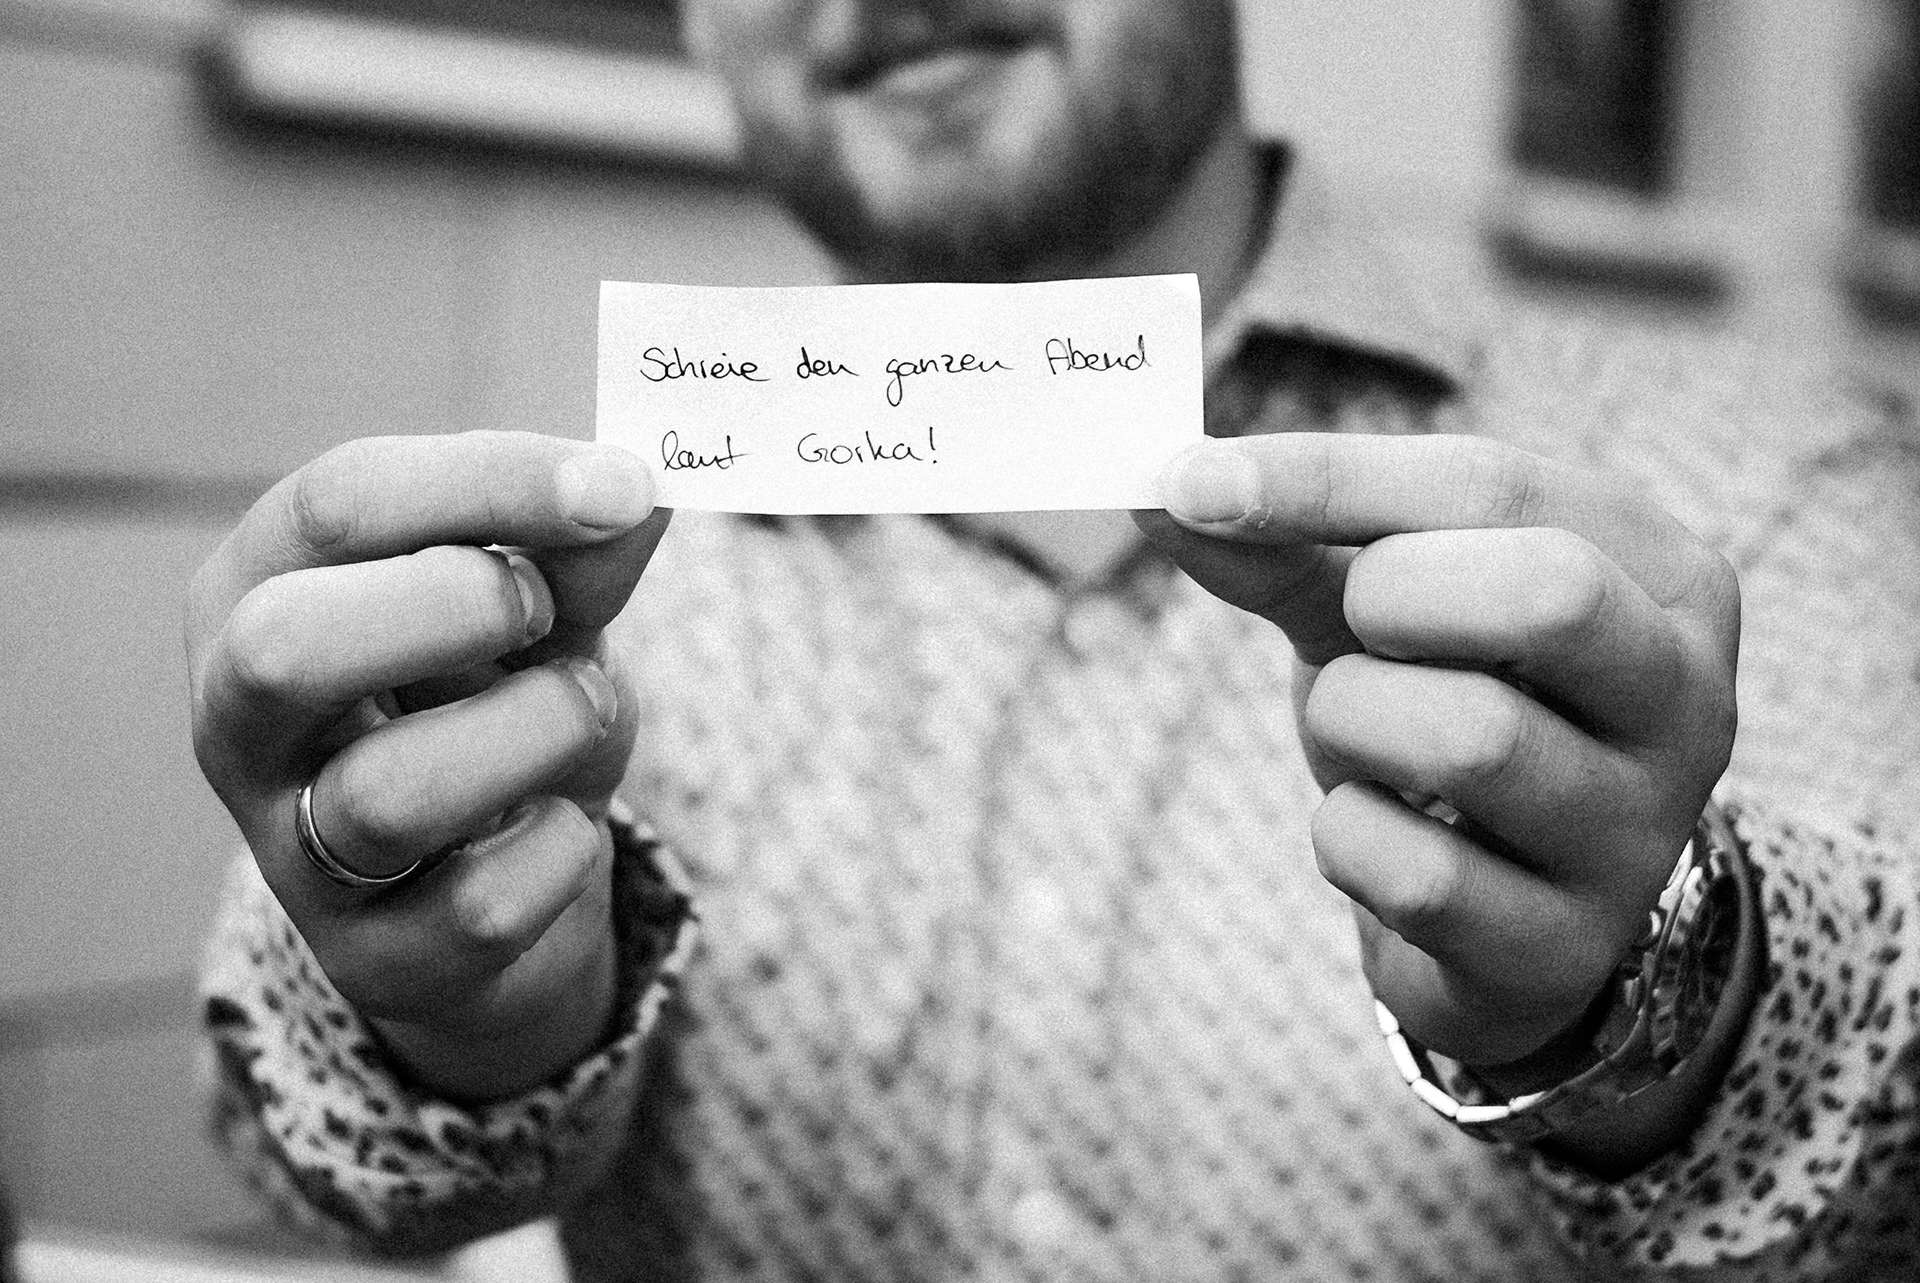 Schreie den ganzen Abend
laut Gorka!